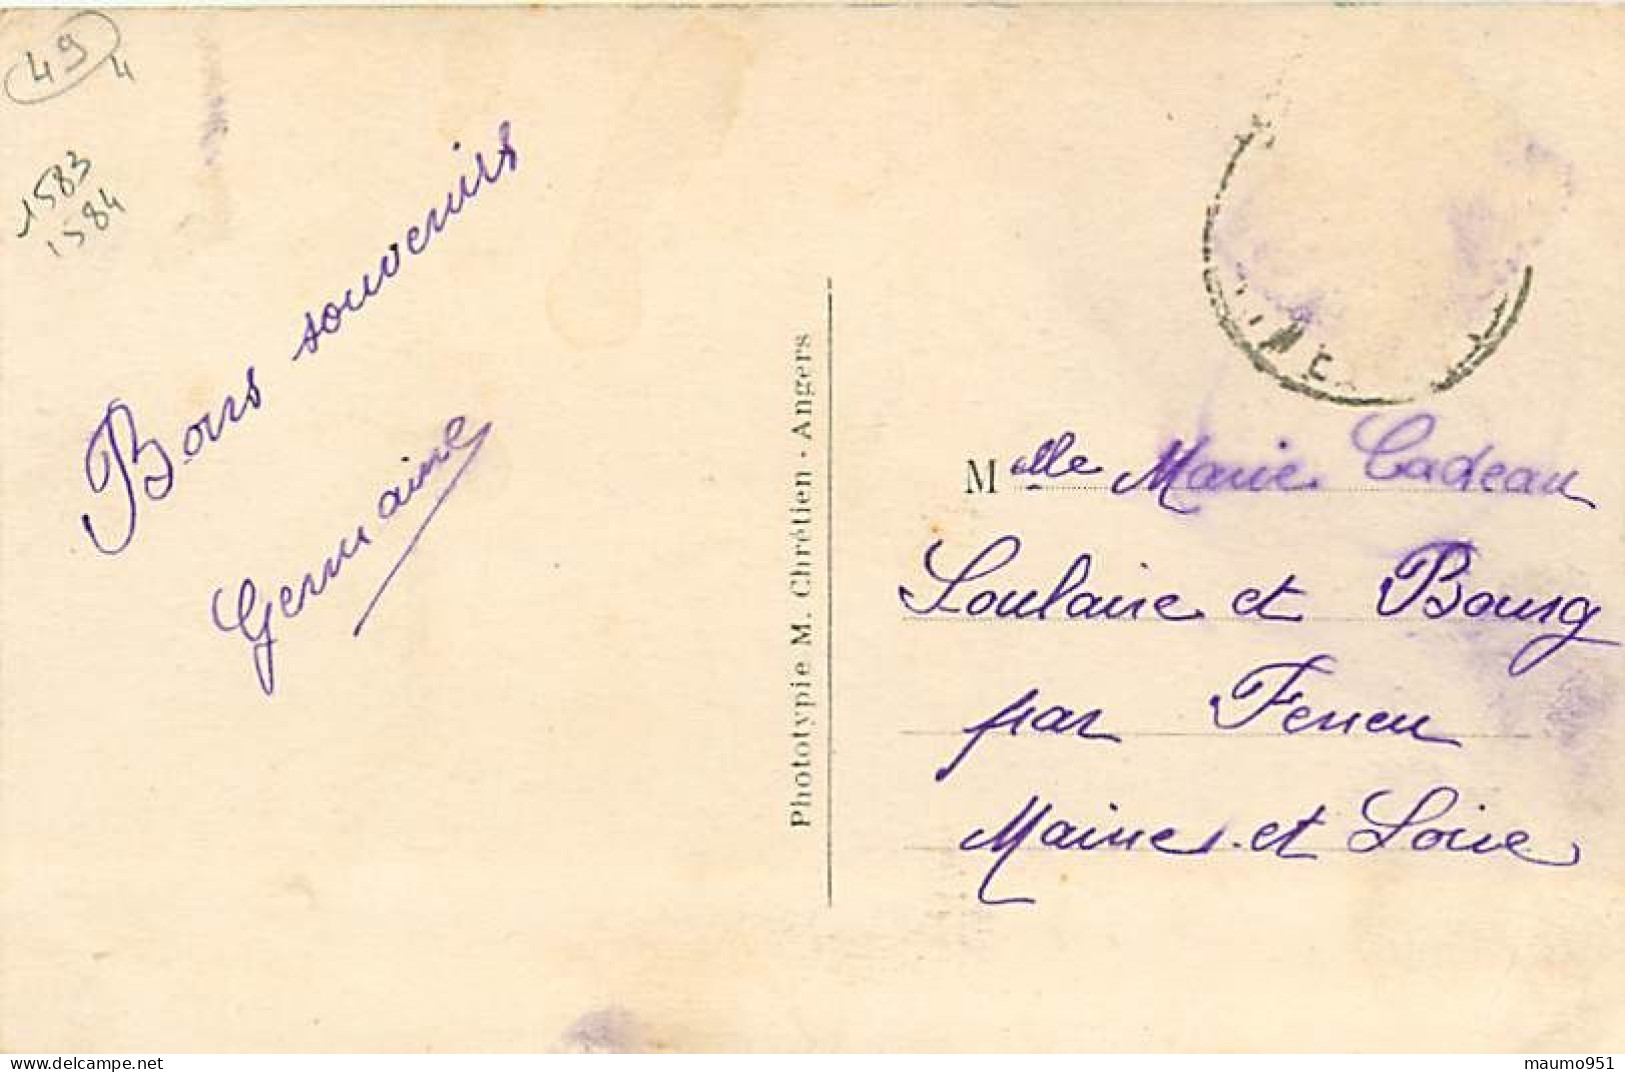 49
4
1583
1584
Bons souvenirs
Germaine
Phototypie M. Chrétien - Angers
Melle Marie Cadeau
Soulaire et Bourg
par Feneu
Maine et Loire
maumo951